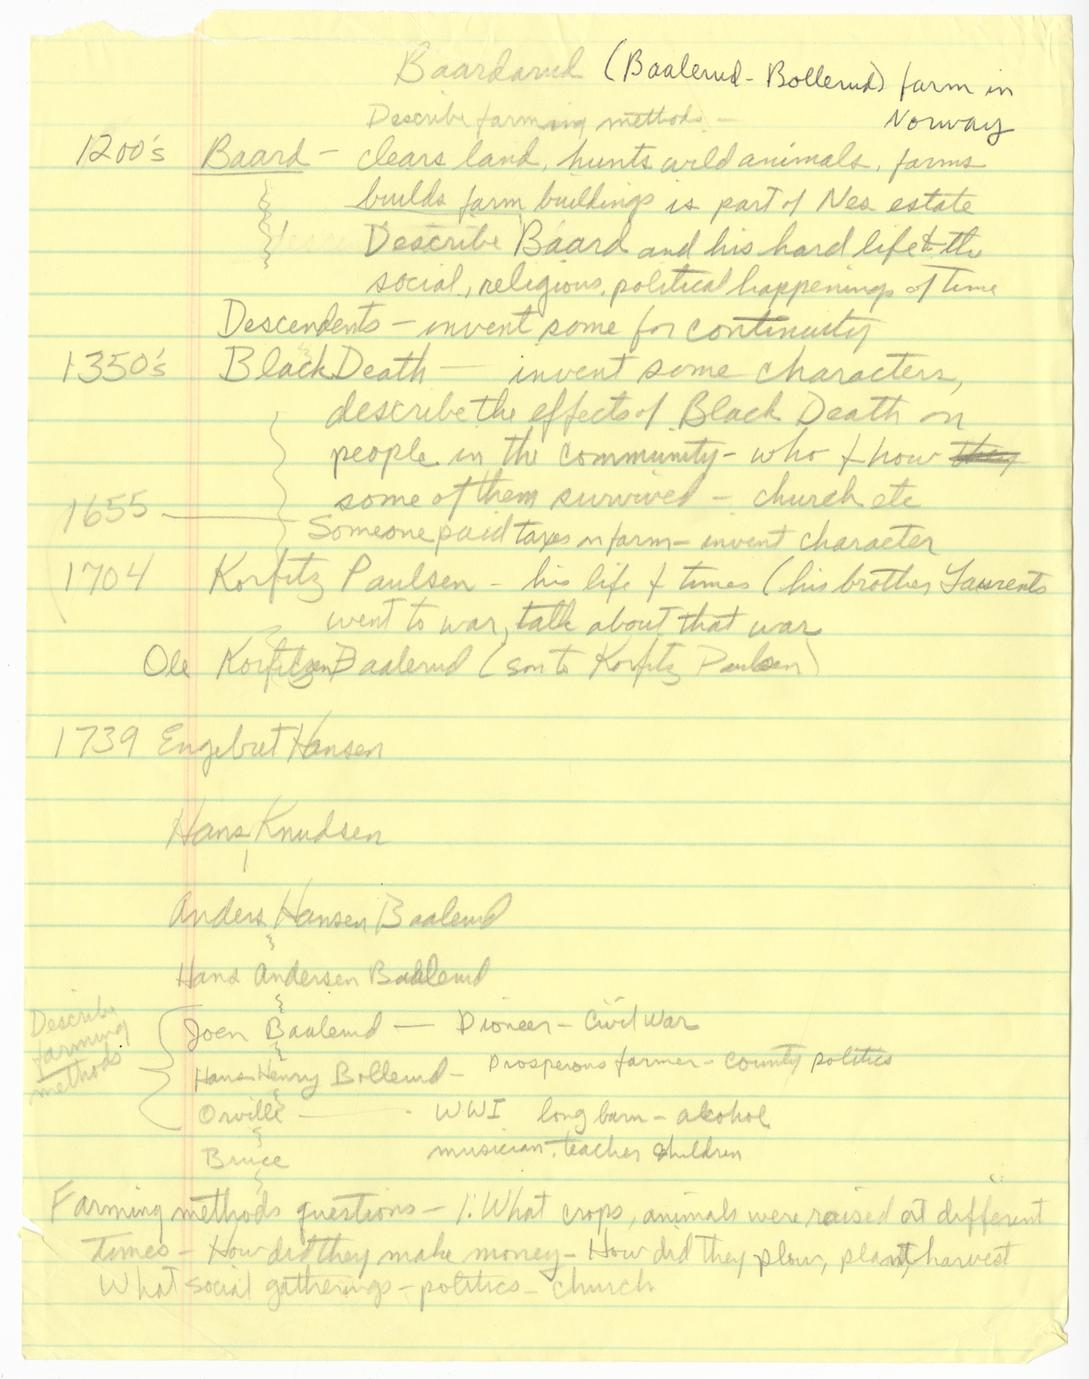 Baardarud (Baalerud - Bollerud) farm in
Norway
Describe farming methods -
1200's Baard - clears land, hunts wild animals, farms
builds farm buildings is part of Nes estate
Describe Baard and his hard life & the
social, religious, political happenings of time
Descendents - invent some for continuity
1350's Black Death - invent some characters,
describe the effects of Black Death on
people in the community - who & how they
some of them survived - church etc
1655 - Someone paid taxes on farm - invent character
1704 Korfitz Paulsen - his life & times (his brother Laurents
went to war, talk about that war
Ole Korfitzen Baalerud (son to Korfitz Paulsen)
1739 Engebret Hansen
Hans Knudsen
Anders Hansen Baalerud
Hans Andersen Baalerud
Describe
farming
methods
Joen Baalerud - Pioneer - Civil War
Hans Henry Bollerud - Prosperous farmer - county politics
Orville - WWI long barn - alcohol
Bruce musician, teacher children
Farming methods questions - 1. What crops, animals were raised at different
times - How did they make money - How did they plow, plant, harvest
What social gatherings - politics - church